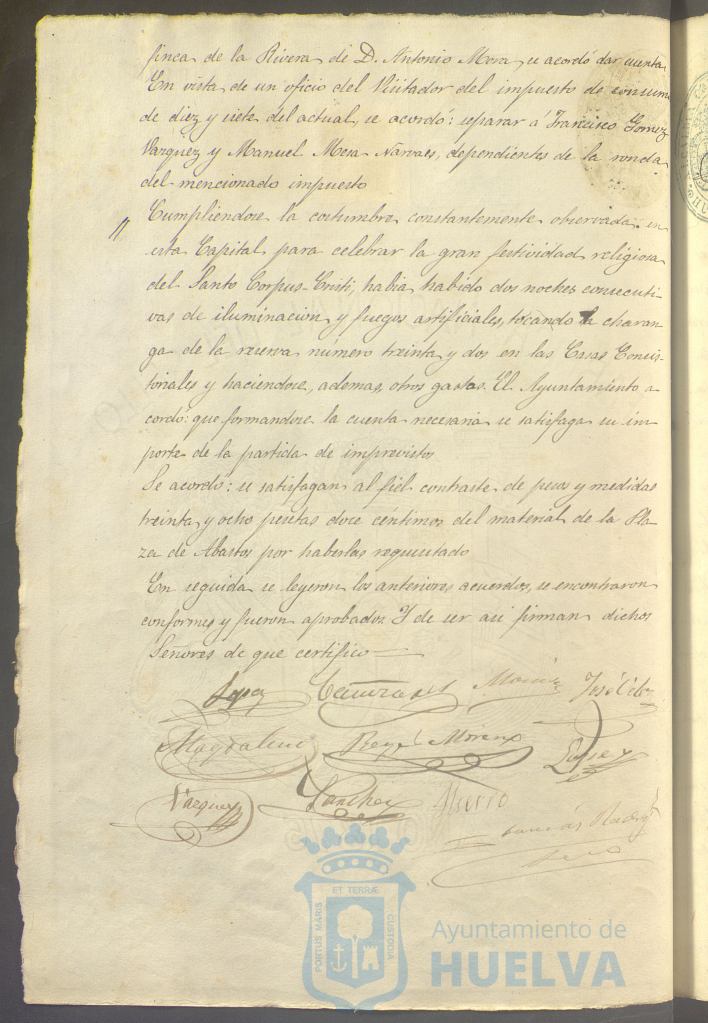 finca de la Rivera de D. Antonio Mora, se acordó dar cuenta
En vista de un oficio del Visitador del impuesto de consumo
de diez y siete del actual, se acordó: separar á Francisco Gomez
Vazquez y Manuel Mesa Narvaes, dependientes de la ronda
del mencionado impuesto
" Cumpliendose la costumbre constantemente observada en
esta Capital para celebrar la gran festividad religiosa
del Santo Corpus-Cristi, habia habido dos noches consecuti-
vas de iluminacion y fuegos artificiales, tocando la charan-
ga de la reserva número treinta y dos en las Casas Consis-
toriales y haciendose, ademas, otros gastos. El Ayuntamiento a-
cordó: que formandose la cuenta necesaria se satisfaga su im-
porte de la partida de imprevistos
Se acordó: se satisfagan al fiel contraste de pesos y medidas
treinta y ocho pesetas doce céntimos del material de la Pla-
za de Abastos por haberlas requisitado
En seguida se leyeron los anteriores acuerdos, se encontraron
conformes y fueron aprobados. Y de ser asi firman dichos
Señores de que certifico
Lopez
José
Magdaleno Moreno Lopez
Vazquez Sanchez
PORTUS MARIS ET TERRÆ CUSTODIA
Ayuntamiento de
HUELVA